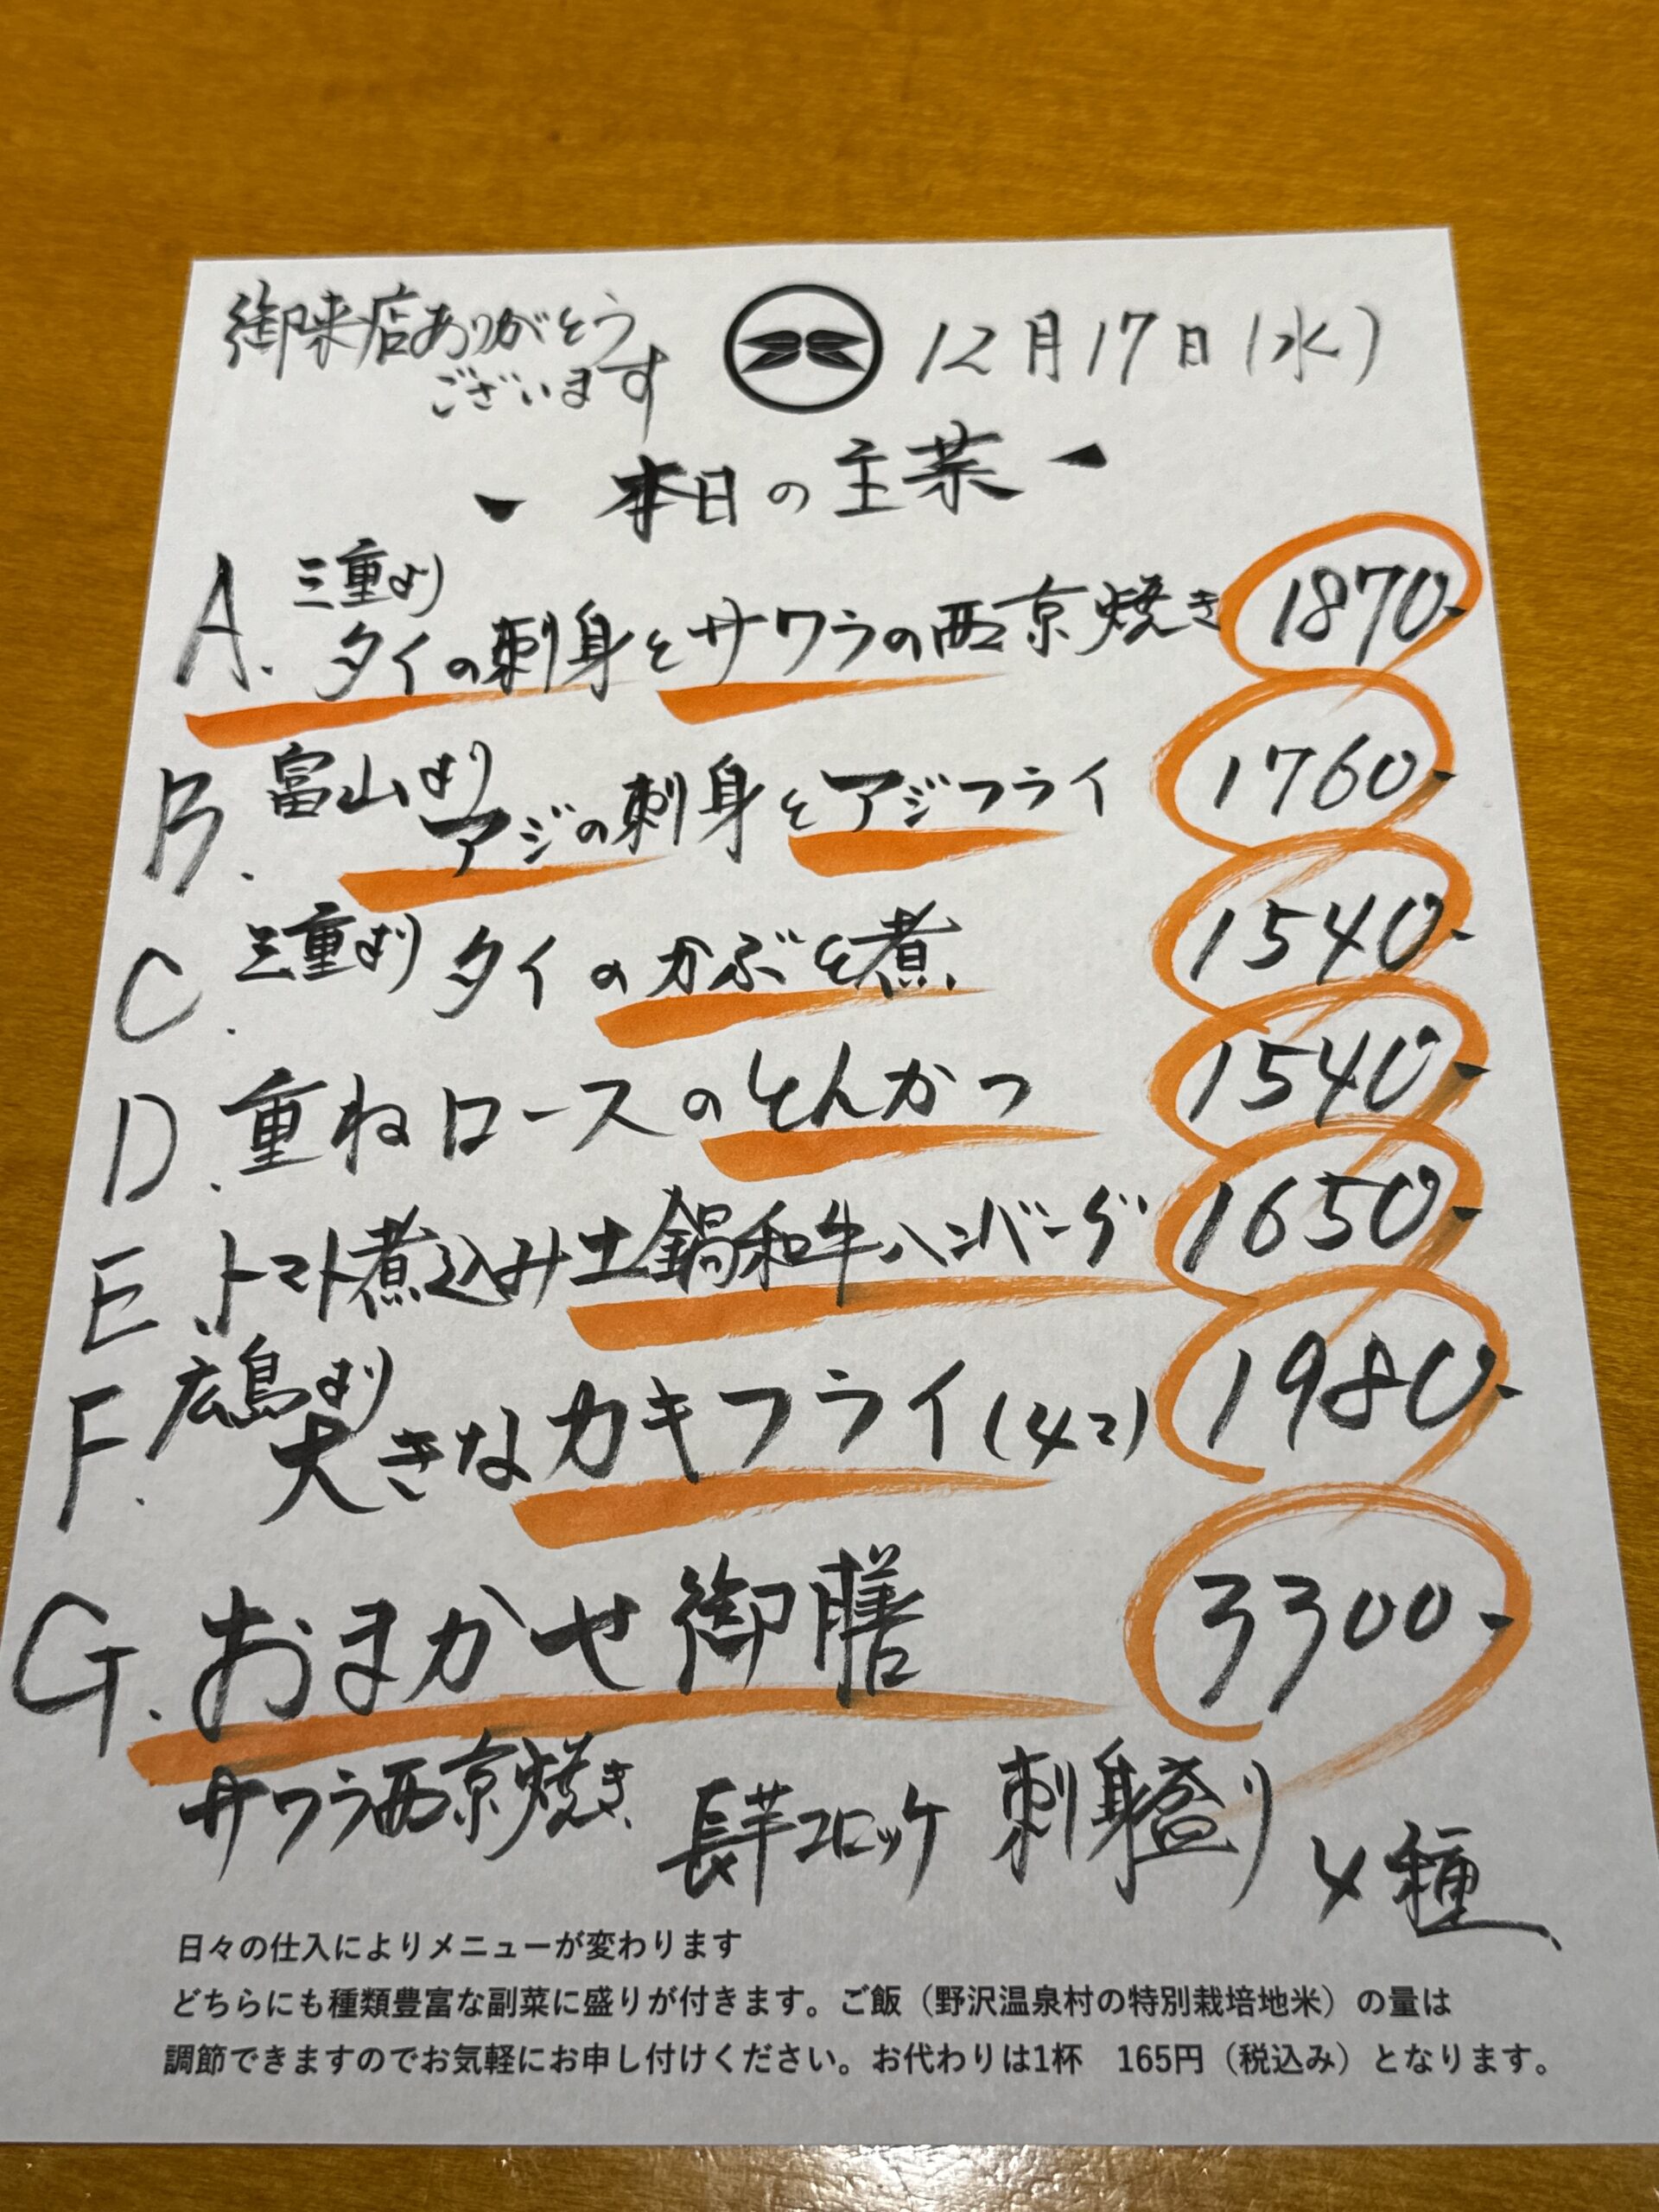 御来店ありがとう
ございます
12月17日(水)
- 本日の主菜 -
A. 三重より
タイの刺身とサワラの西京焼き 1870-
B. 富山より
アジの刺身とアジフライ 1760-
C. 三重より タイのかぶと煮 1540-
D. 重ねロースのとんかつ 1540-
E. トマト煮込み土鍋和牛ハンバーグ 1650-
F. 広島より
大きなカキフライ(4コ) 1980-
G. おまかせ御膳 3300-
サワラ西京焼き 長芋コロッケ 刺身盛り4種
日々の仕入によりメニューが変わります
どちらにも種類豊富な副菜に盛りが付きます。ご飯（野沢温泉村の特別栽培地米）の量は
調節できますのでお気軽にお申し付けください。お代わりは1杯　165円（税込み）となります。